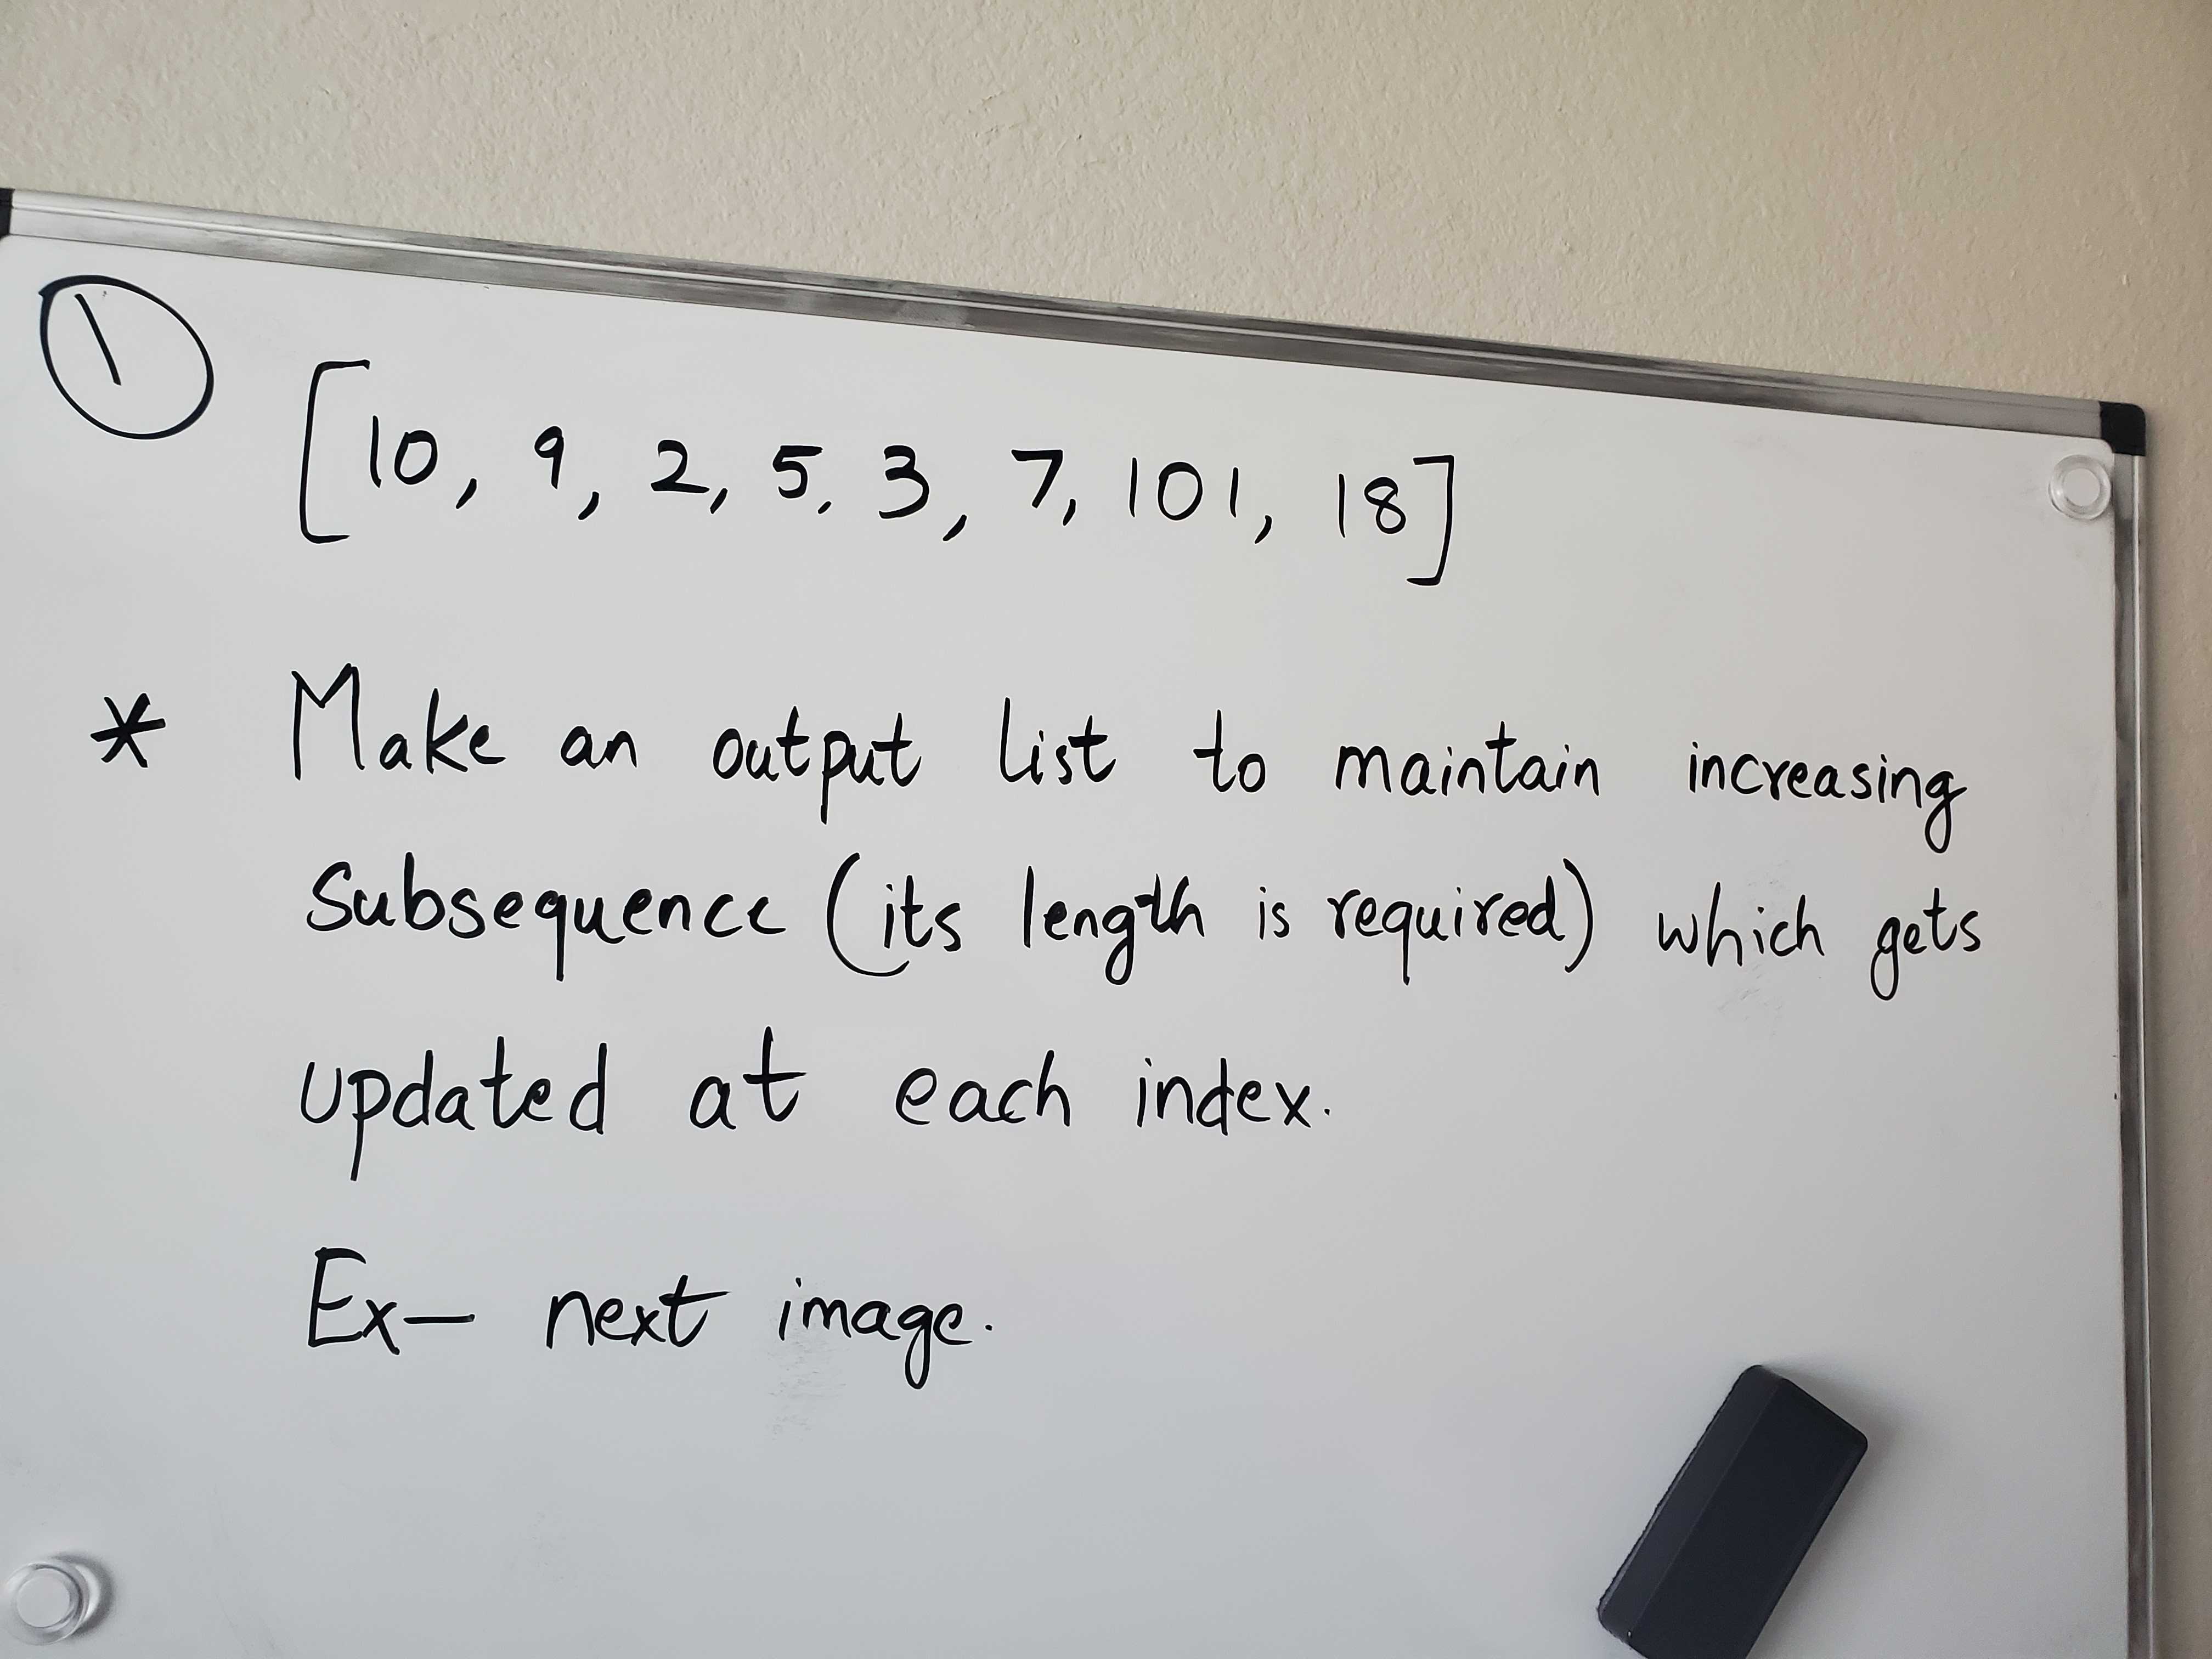 1
[10, 9, 2, 5, 3, 7, 101, 18]
* Make an output list to maintain increasing
Subsequence (its length is required) which gets
updated at each index.
Ex- next image.